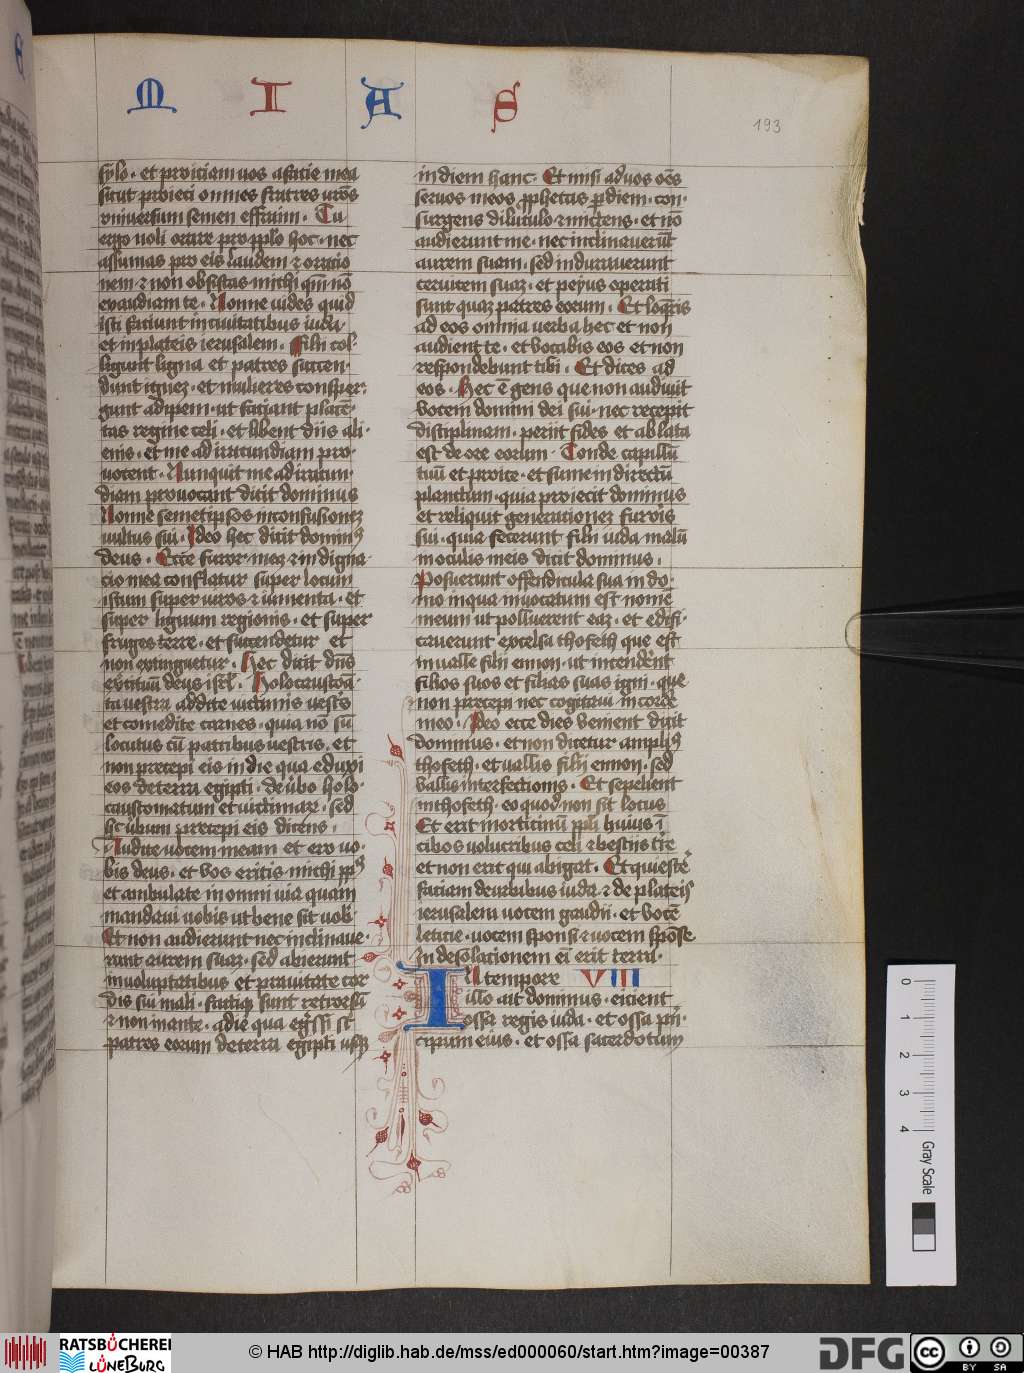 M I A S
193
sylo · et proiciam uos a facie mea
sicut proieci omnes fratres uros
vniuersum semen effraim · Tu
ergo noli orare pro pplo hoc · nec
assumas pro eis laudem ⁊ oratio
nem ⁊ non obsistas michi qm nō
exaudiam te · Nonne uides quid
isti faciunt in ciuitatibus iuda ·
et in plateis ierusalem · Filii col
ligunt ligna et patres succen
dunt ignez · et mulieres consper
gunt adipem · ut faciant placē
tas regine celi · et libent diis ali
enis · et me ad iracundiam pro
uocent · Nunquit me ad iracun
diam prouocant dicit dominus
Nonne semetipsos in confusionez
uultus sui · Ideo hec dicit dominꝰ
deus · Ecce furor meꝰ ⁊ indigna
cio mea conflatur super locum
istum super uiros ⁊ iumenta · et
super lignum regionis · et super
fruges terre · et succendetur et
non extinguetur · Hec dicit dns
exercituū deus isrl · Holocaustoā
ta uestra addite uictimis uestris
et comedite carnes · quia nō sū
locutus cū patribus uestris · et
non precepi eis in die qua eduxi
eos de terra egipti · de ubo holo
caustomatum et uictimaꝝ · sed
hͦc ubum precepi eis dicens ·
Audite uocem meam et ero uo
bis deus · et uos eritis michi pplꝰ
et ambulate in omni uia quam
mandaui uobis ut bene sit uob
Et non audierunt nec inclinaue
runt aurem suaz · sed abierunt
in uoluptatibus et prauitate cor
dis sui mali · factiqꝫ sunt retrorsū
⁊ non in ante · a die qua egressi st
patres eorum de terra egipti usqꝫ
in diem hanc · Et misi ad uos oēs
seruos meos pphetas p diem · con
surgens diluculo ⁊ mictens · et nō
audierunt me · nec inclinauerūt
aurem suam · sed indurauerunt
ceruicem suaz · et peyus operati
sunt quaz patres eorum · Et loqueris
ad eos omnia uerba hec et non
audient te · et vocabis eos et non
respondebunt tibi · Et dices ad
eos · Hec ē gens que non audiuit
vocem domini dei sui · nec recepit
disciplinam · periit fides et ablata
est de ore eorum · Tonde capillū
tuū et proice · et sume in directū
planctum · quia proiecit dominus
et reliquit generationez furoris
sui · quia fecerunt filii iuda malū
in oculis meis dicit dominus ·
Posuerunt offendicula sua in do
mo in qua inuocatum est nomē
meum ut polluerent eaz · et edifi
cauerunt excelsa thofeth que est
in ualle filii ennon · ut incenderēt
filios suos et filias suas igni · que
non precepi nec cogitaui in corde
meo · Ideo ecce dies venient dicit
dominus · et non dicetur ampliꝰ
thofeth · et uallis filii ennon · sed
vallis interfectionis · Et sepelient
in thofeth · eo quod non sit locus
Et erit morticinū ppli huius ī
cibos volucribus celi ⁊ bestiis tre
et non erit qui abigat · Et quiescē
faciam de urbibus iuda ⁊ de plateis
ierusalem uocem gaudii · et vocē
leticie · uocem sponsi ⁊ uocem spōse
In desolacionem ei erit terra ·
IN tempore VIII
illo ait dominus · eicient
ossa regis iuda · et ossa prin
cipum eius · et ossa sacerdotum
0 1 2 3 4 Gray Scale
RATSBÜCHEREI
LÜNEBURG
© HAB http://diglib.hab.de/mss/ed000060/start.htm?image=00387
DFG
cc BY SA